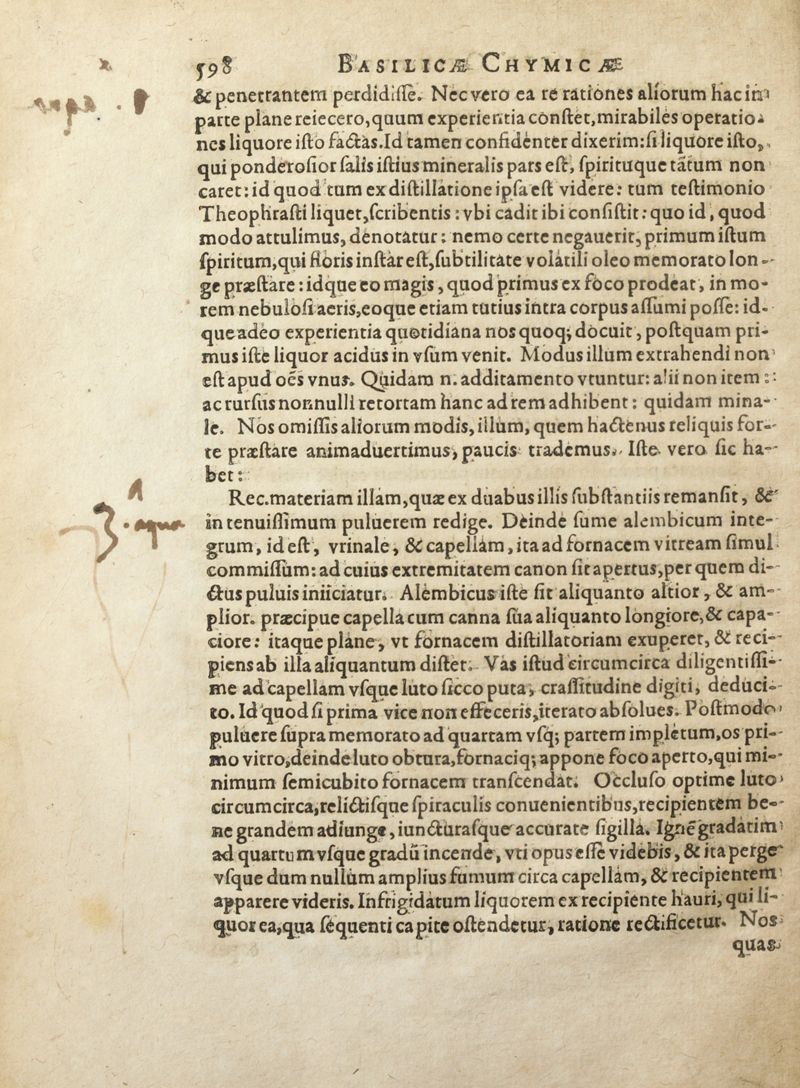 598 BASILICÆ CHYMICÆ
& penetrantem perdidiſſe. Nec vero ea re rationes aliorum hac in
parte plane reiecero, quum experientia conſtet, mirabiles operatio-
nes liquore iſto factas. Id tamen confidenter dixerim: ſi liquore iſto,
qui ponderoſior ſalis iſtius mineralis pars eſt, ſpirituque tãtum non
caret: id quod tum ex diſtillatione ipſa eſt videre: tum teſtimonio
Theophraſti liquet, ſcribentis: vbi cadit ibi conſiſtit: quo id, quod
modo attulimus, denotatur: nemo certe negauerit, primum iſtum
ſpiritum, qui floris inſtar eſt, ſubtilitate volatili oleo memorato lon-
ge præſtare: idque eo magis, quod primus ex foco prodeat, in mo-
rem nebuloſi aeris, eoque etiam tutius intra corpus aſſumi poſſe: id-
que adeo experientia quotidiana nos quoq; docuit, poſtquam pri-
mus iſte liquor acidus in vſum venit. Modus illum extrahendi non
eſt apud oẽs vnus. Quidam n. additamento vtuntur: alii non item:
ac rurſus nonnulli retortam hanc ad rem adhibent: quidam mina-
le. Nos omiſſis aliorum modis, illum, quem hactenus reliquis for-
te præſtare animaduertimus, paucis trademus. Iſte vero ſic ha-
bet:
A
Rec. materiam illam, quæ ex duabus illis ſubſtantiis remanſit, &
3. aqua
in tenuiſſimum puluerem redige. Deinde ſume alembicum inte-
grum, id eſt, vrinale, & capellam, ita ad fornacem vitream ſimul
commiſſum: ad cuius extremitatem canon ſit apertus, per quem di-
ctus puluis iniiciatur. Alembicus iſte ſit aliquanto altior, & am-
plior. præcipue capella cum canna ſua aliquanto longiore, & capa-
ciore: itaque plane, vt fornacem diſtillatoriam exuperet, & reci-
piens ab illa aliquantum diſtet. Vas iſtud circumcirca diligentiſſi-
me ad capellam vſque luto ſicco puta, craſſitudine digiti, deduci-
to. Id quod ſi prima vice non effeceris, iterato abſolues. Poſtmodo
puluere ſupra memorato ad quartam vſq; partem impletum, os pri-
mo vitro, deinde luto obtura, fornaciq; appone foco aperto, qui mi-
nimum ſemicubito fornacem tranſcendat. Occluſo optime luto
circumcirca, relictiſque ſpiraculis conuenientibus, recipientem be-
ne grandem adiunge, iuncturaſque accurate ſigilla. Ignẽ gradatim
ad quartum vſque gradũ incende, vti opus eſſe videbis, & ita perge
vſque dum nullum amplius fumum circa capellam, & recipientem
apparere videris. Infrigidatum liquorem ex recipiente hauri, qui li-
quor ea, qua ſequenti capite oſtendetur, ratione rectificetur. Nos
quas